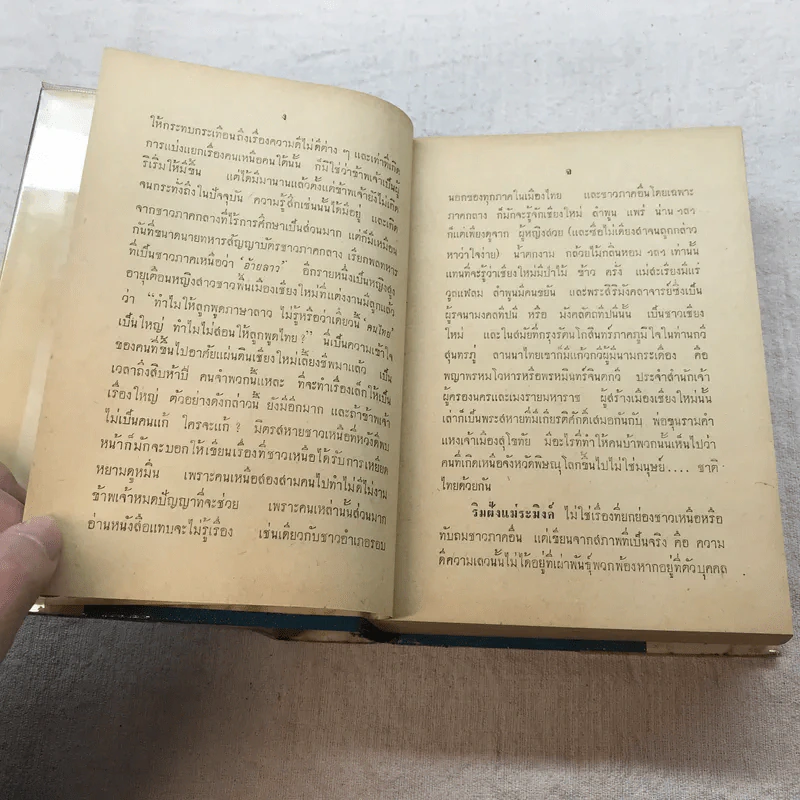 ง
ให้กระทบกระเทือนถึงเรื่องความดีไม่ดีต่าง ๆ และเท่าที่เกิด
การแบ่งแยกเรื่องคนเหนือคนใต้นั้น ก็มิใช่ว่าข้าพเจ้าเป็นผู้
ริเริ่มให้มีขึ้น แต่ได้มีมานานแล้วตั้งแต่ข้าพเจ้ายังไม่เกิด
จนกระทั่งถึงในปัจจุบัน ความรู้สึกเช่นนั้นได้มีอยู่ และเกิด
จากชาวภาคกลางที่ไร้การศึกษาเป็นส่วนมาก แต่ก็มีเหมือน
กันที่ขนาดนายทหารสัญญาบัตรชาวภาคกลาง เรียกพลทหาร
ที่เป็นชาวภาคเหนือว่า "อ้ายลาว" อีกรายหนึ่งเป็นหญิงสูง
อายุเตือนหญิงสาวชาวพื้นเมืองเชียงใหม่ที่แต่งงานมีลูกแล้ว
ว่า "ทำไมให้ลูกพูดภาษาลาว ไม่รู้หรือว่าเดี๋ยวนี้ 'คนไทย'
เป็นใหญ่ ทำไมไม่สอนให้ลูกพูดไทย?" นี่เป็นความเข้าใจ
ของคนที่ขึ้นไปอาศัยแผ่นดินเชียงใหม่เลี้ยงชีพมาแล้ว เป็น
เวลาถึงสิบห้าปี คนจำพวกนี้แหละ ที่จะทำเรื่องเล็กให้เป็น
เรื่องใหญ่ ตัวอย่างดังกล่าวนี้ ยังมีอีกมาก และถ้าข้าพเจ้า
ไม่เป็นคนแก้ ใครจะแก้? มิตรสหายชาวเหนือที่หวังดีพบ
หน้าก็มักจะบอกให้เขียนเรื่องที่ชาวเหนือได้รับการเหยียด
หยามดูหมิ่น เพราะคนเหนือสองสามคนไปทำไม่ดีไม่งาม
ข้าพเจ้าหมดปัญญาที่จะช่วย เพราะคนเหล่านั้นส่วนมาก
อ่านหนังสือแทบจะไม่รู้เรื่อง เช่นเดียวกับชาวอำเภอรอบ
นอกของทุกภาคในเมืองไทย และชาวภาคอื่นโดยเฉพาะ
ภาคกลาง ก็มักจะรู้จักเชียงใหม่ ลำพูน แพร่ น่าน ฯลฯ
ก็แต่เพียงดุจาก ผู้หญิงสวย (และชื่อไม่เพียงสำจนถูกกล่าว
หาว่าใจง่าย) น้ำตกงาม กล้วยไม้กลิ่นหอม ฯลฯ เท่านั้น
แทนที่จะรู้ว่าเชียงใหม่มีป่าไม้ ข้าว ครั่ง แม่สะเรียงมีแร่
วุลแฟลม ลำพูนมีคนขยัน และพระสิริมังคลาจารย์ซึ่งเป็น
ผู้รจนามงคลที่ปนี หรือ มังคลัตถทีปนี้ เป็นชาวเชียง
ใหม่ และในสมัยที่กรุงรัตนโกสินทร์ภาคภูมิใจในท่านกวี
สุนทรภู่ ลานนาไทยเขาก็มีแก้วกวีผู้มีนามกระเดื่อง คือ
พญาพรหมโวหารหรือพรหมมินทร์จินตกวี ประจำสำนักเจ้า
ผู้ครองนครและเมงรายมหาราช ผู้สร้างเมืองเชียงใหม่นั้น
เล่าก็เป็นพระสหายที่มีเกียรติศักดิ์เสมอกันกับ พ่อขุนรามคำ
แหงเจ้าเมืองสุโขทัย มีอะไรที่ทำให้คนบ้าพวกนั้นเห็นไปว่า
คนที่เกิดเหนือจังหวัดพิษณุโลกขึ้นไปไม่ใช่มนุษย์.... ชาติ
ไทยด้วยกัน
ริมฝั่งแม่ระมิงค์ ไม่ใช่เรื่องที่ยกย่องชาวเหนือหรือ
ทับถมชาวภาคอื่น แต่เขียนจากสภาพที่เป็นจริง คือ ความ
ดีความเลวนั้นไม่ได้อยู่ที่เผ่าพันธุ์พวกพ้องหากอยู่ที่ตัวบุคคล